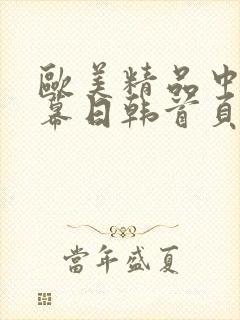 歐美精品中
幕日韩首頁
當年盛夏